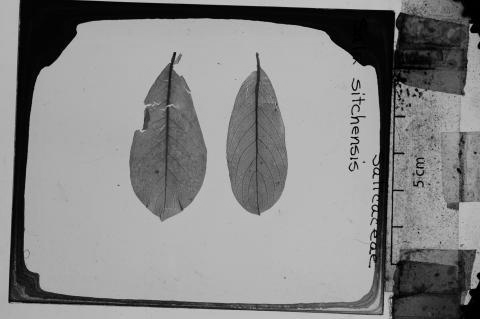 Salix sitchensis
Salicaceae
5 cm